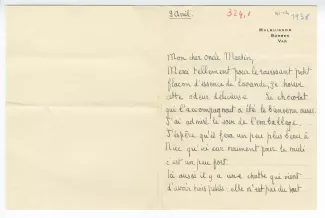 9 Avril.
324,1
1938
MALBUISSON
BANDOL
VAR
Mon cher oncle Martin,
Merci tellement pour le ravissant petit
flacon d'essence de lavande, je
cette odeur délicieuse. Le chocolat
qui l'accompagnait a été le bienvenu aussi
J'ai admiré le soin de l'emballage.
J'espère qu'il fera un peu plus beau à
Nice qu'ici car vraiment pour le midi
c'est un peu fort.
Ici aussi il y a une chatte qui vient
d'avoir trois petits: elle n'est pas du tout